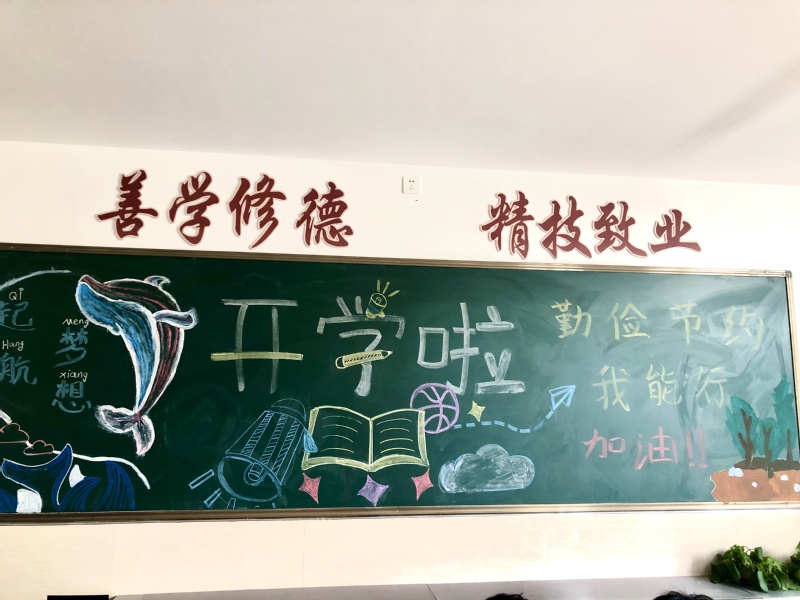 善学修德 精技致业
Qi
起
Hang
航
meng
梦
xiang
想
开学啦
勤俭节约
我能行
加油!!